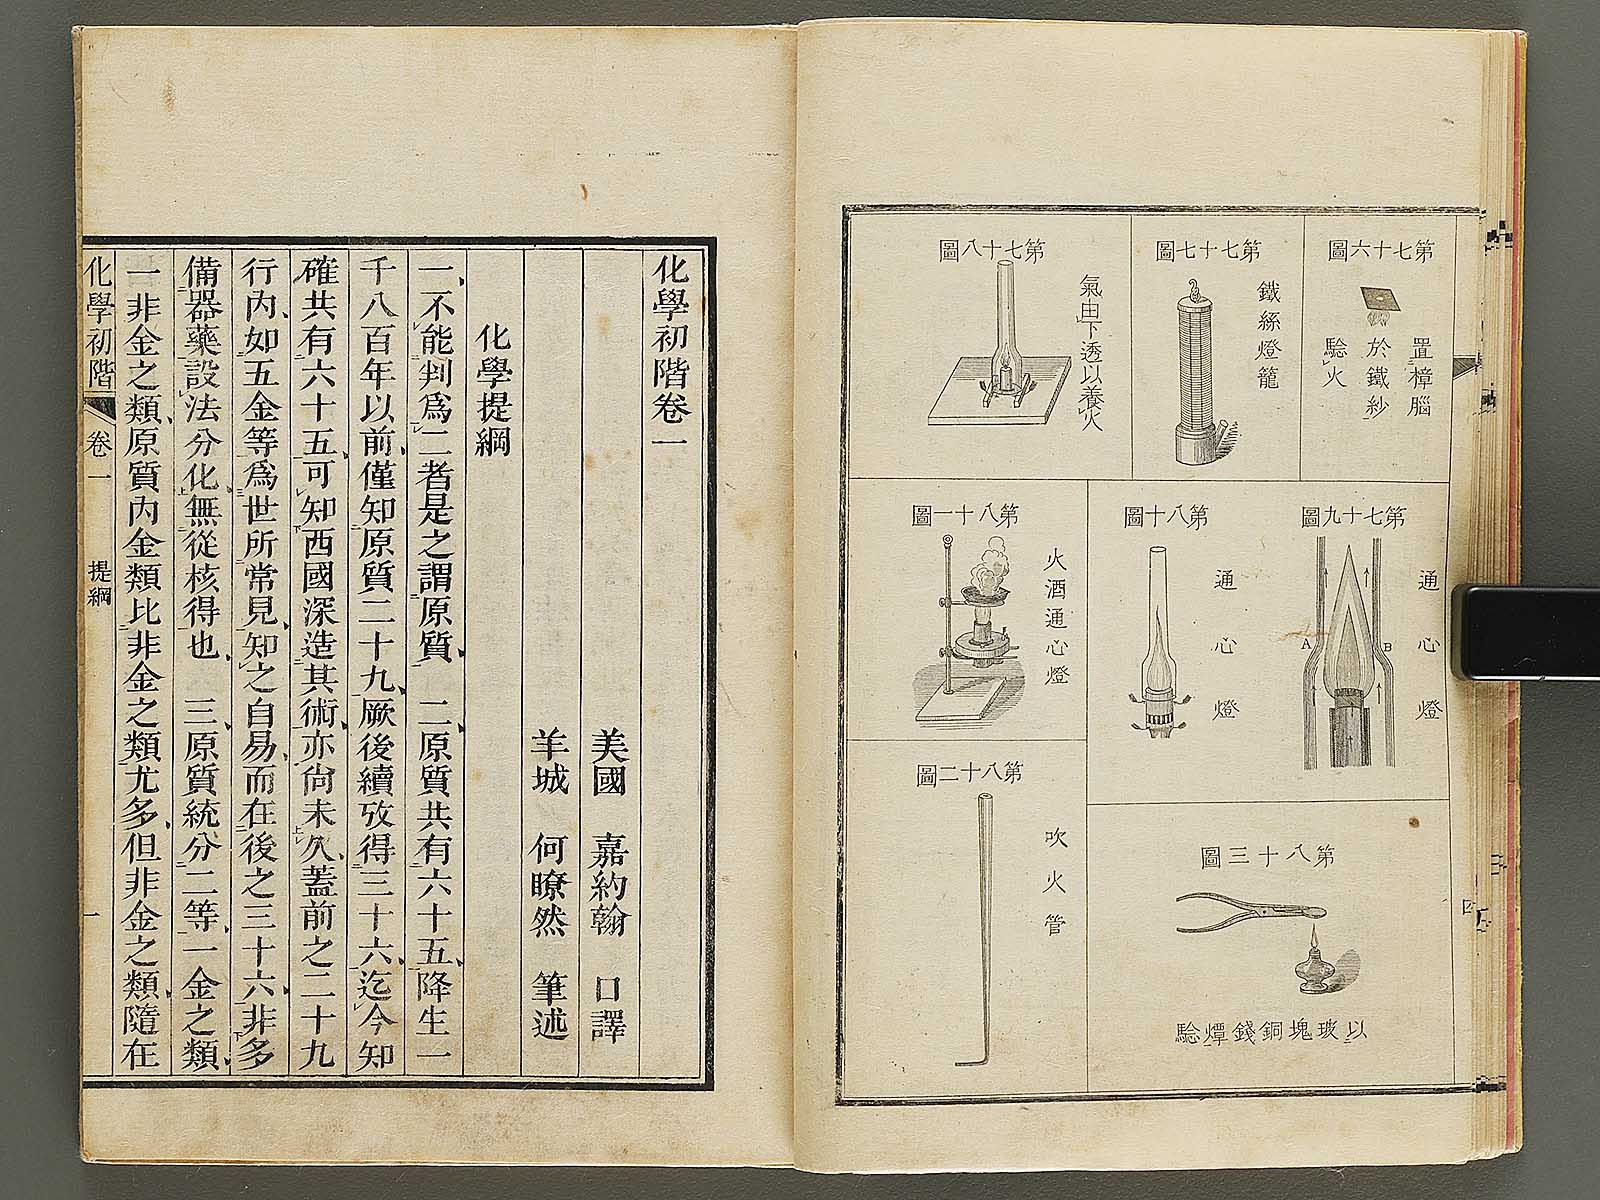 第七十六圖
置樟腦
於鐵紗
騐火
第七十七圖
鐵絲燈籠
第七十八圖
氣由下透以養火
第七十九圖
通心燈
A
B
第八十圖
通心燈
第八十一圖
火酒通心燈
第八十二圖
吹火管
第八十三圖
以玻塊銅錢燂騐
四
化學初階卷一
美國 嘉約翰 口譯
羊城 何瞭然 筆述
化學提綱
一不能判爲二者是之謂原質 二原質共有六十五降生一
千八百年以前僅知原質二十九厥後續攷得三十六迄今知
確共有六十五可知西國深造其術亦尚未久蓋前之二十九
行內如五金等爲世所常見知之自易而在後之三十六非多
備器藥設法分化無從核得也 三原質統分二等一金之類
一非金之類原質內金類比非金之類尤多但非金之類隨在
化學初階 卷一 提綱 一